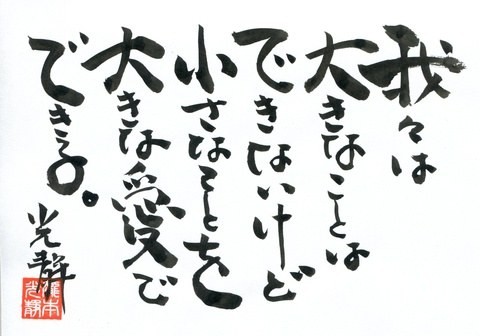 我々は
大きなことは
できないけど
小さなことを
大きな愛で
できる。
光静